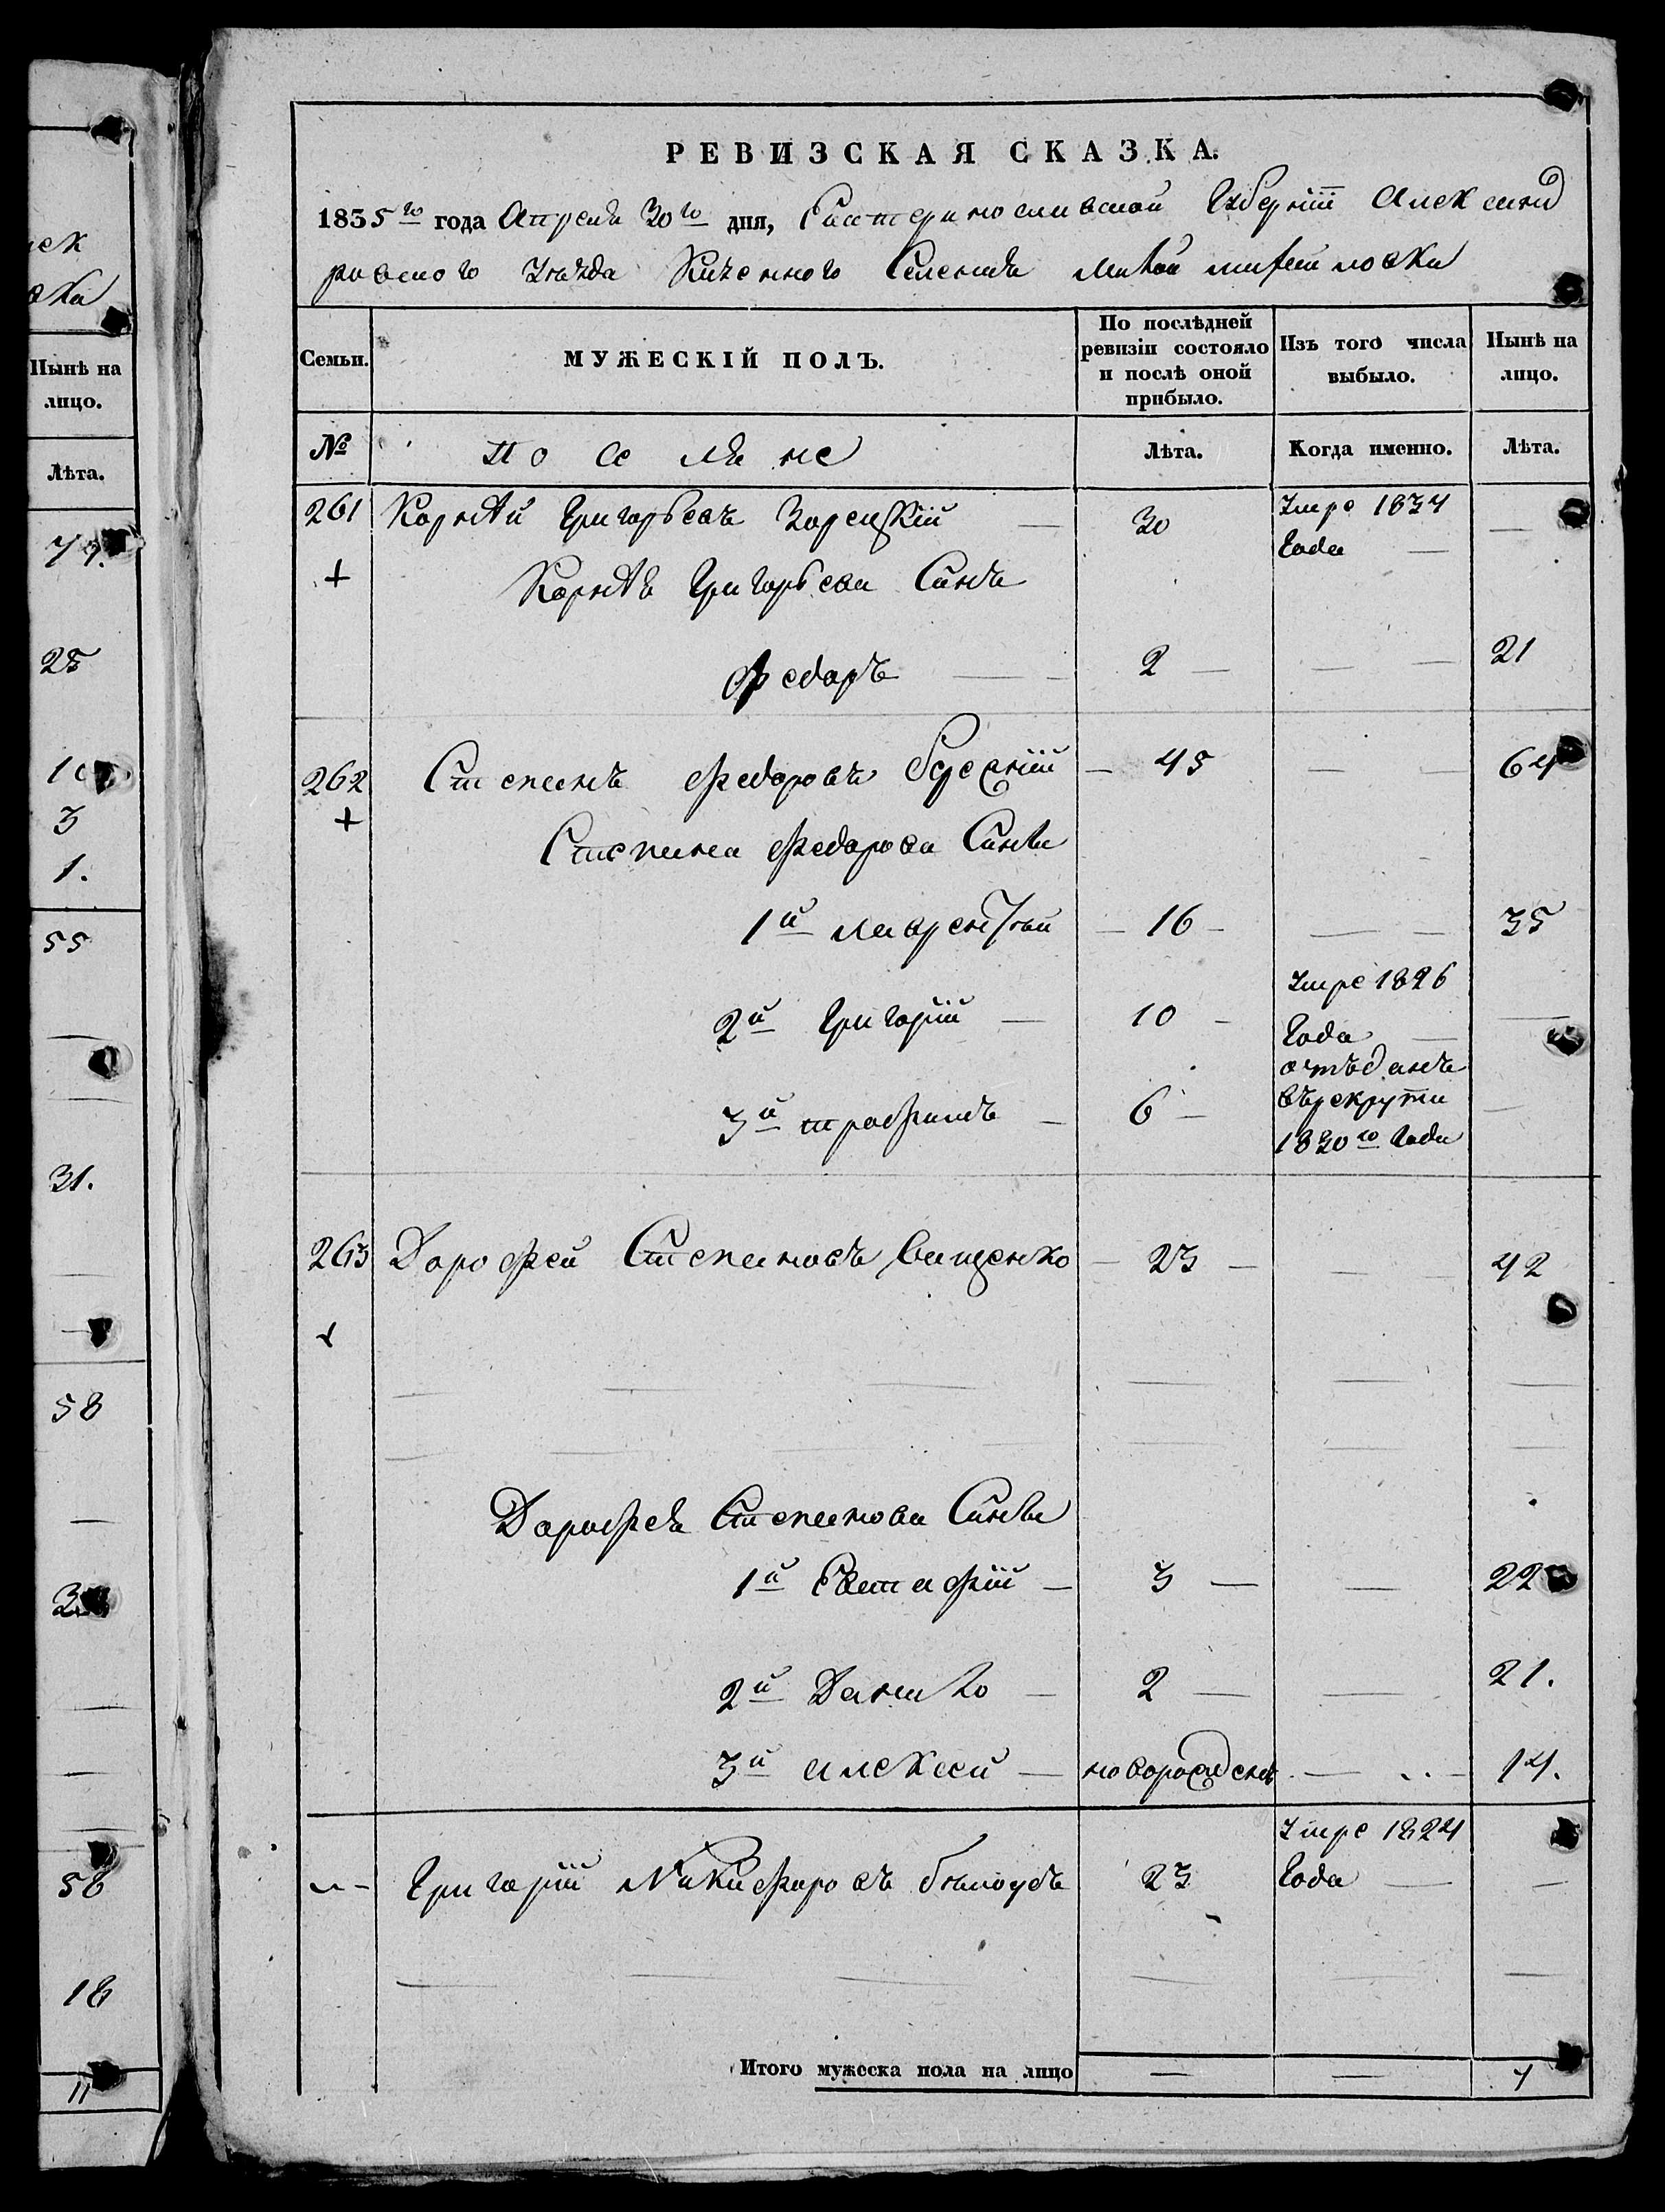 РЕВИЗСКАЯ СКАЗКА.
1835го года Апреля 30го дня, Екатеринославской Губернiи Александ
ровского Уѣзда Казенного Селенія Малой михайловки
Семьи. МУЖЕСКІЙ ПОЛЪ. По послѣдней ревизіи состояло и послѣ оной прибыло. Изъ того числа выбыло. Нынѣ на лицо.
№ Поселяне Лѣта. Когда именно. Лѣта.
261 Корнѣй Григорьевъ Зорецкій — 30 Умре 1834 Года — —
+ Корнѣя Григорьева Синъ
Федоръ — 2 — — — 21
262 Степанъ Федоровъ — 45 — — 64
+ Степана Федорова Сини
1й Лаврентій — 16 — — — 35
2й Григорій — 10 — Умре 1826 Года — —
3й трофимъ — 6 — отъданъ върекруты 1830го Года —
263 Дорофей Степановъ Ващенко — 23 — — — 42
+
Дорофея Степанова Сини
1й Евстафій — 3 — — 22
2й Данило — 2 — — 21.
3й алексей — новорожденъ — — 14.
— Григорій Никифоровъ бѣлоусъ 23 Умре 1824 Года — —
Итого мужеска пола на лицо — — 7
ек
вки
Нынѣ на
лицо.
Лѣта.
25
3
1.
55
31.
58
58
18
11